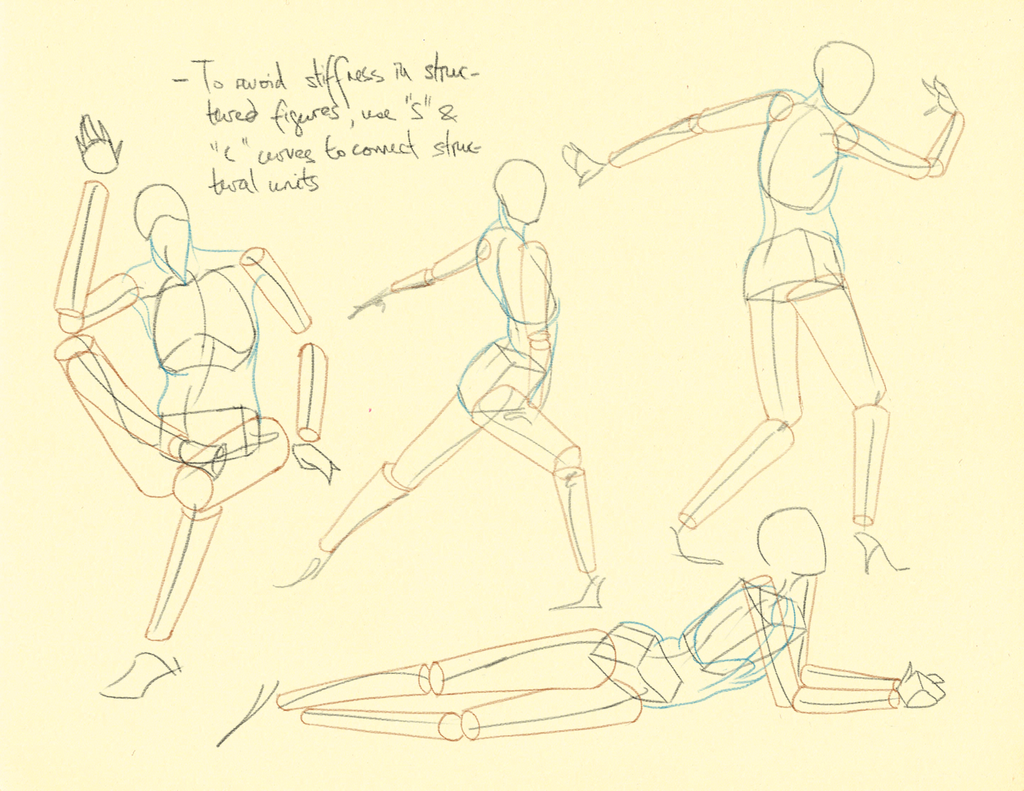 - To avoid stiffness in struc-
tured figures, use "S" &
"C" curves to connect struc-
tural units